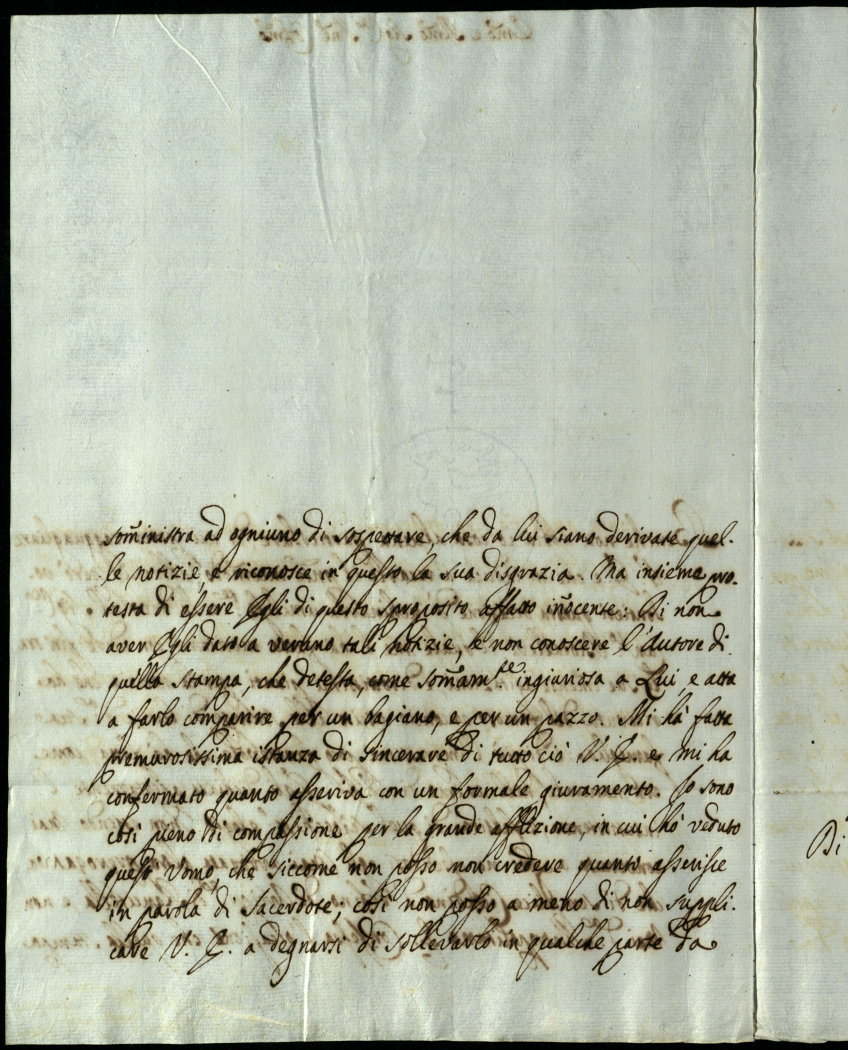 som̃inistra ad ogniuno di sospettare, che da lui siano derivate quel-
le notizie, e riconosce in questo la sua disgrazia. Ma insieme pro-
testa di essere Egli di questo sproposito affatto iñocente: Di non
aver Egli dato a veruno tali notizie, e non conoscere l'Autore di
quella stampa, che detesta, come som̃am.te ingiuriosa a Lui, e atta
a farlo comparire per un bagiano, e per un pazzo. Mi hà fatta
premurosissima istanza di sincerare di tutto ciò V. E. e mi ha
confermato quanto asseriva con un formale giuramento. Io sono
così pieno di compassione per la grande afflizione, in cui hò veduto
questo Vomo, che siccome non posso non credere quanto asserisce
in parola di Sacerdote; così non posso a meno di non suppli-
care V. E. a degnarsi di sollevarlo in qualche parte da
Di